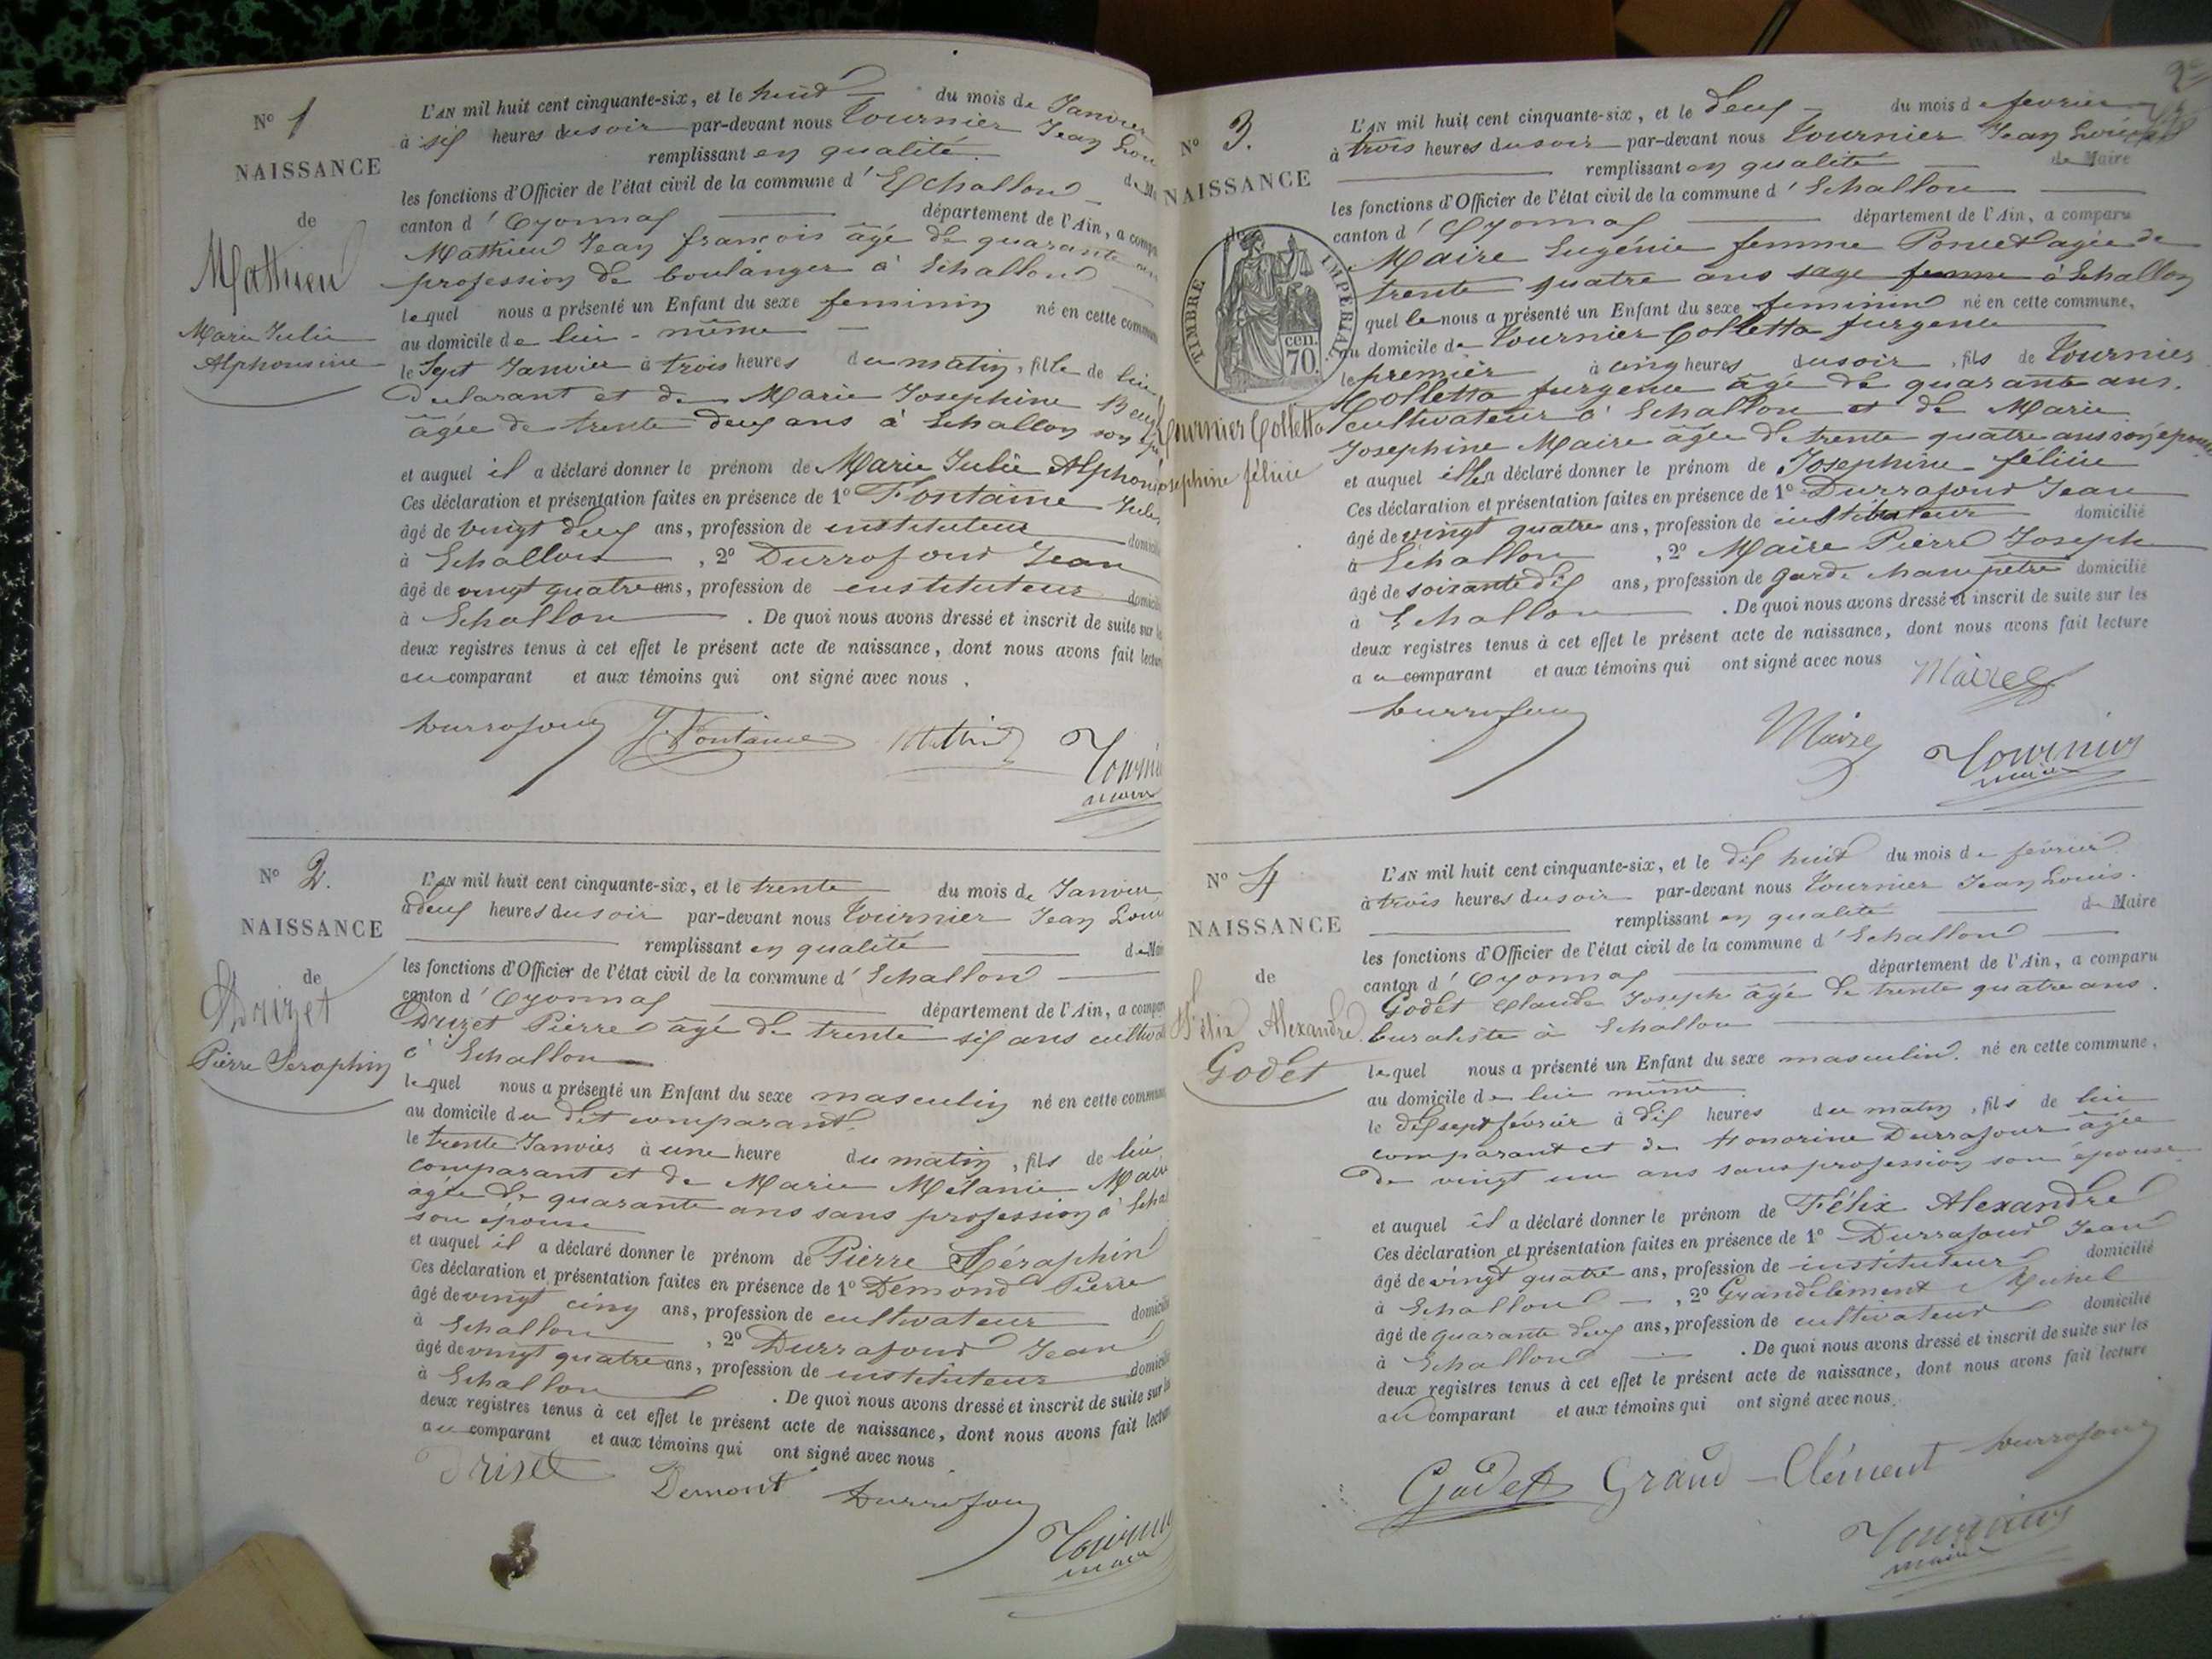 N° 1
NAISSANCE
de
Mathieu
Marie Julie
Alphonsine
L'AN mil huit cent cinquante-six, et le huit du mois de Janvier
à six heures du soir par-devant nous Tournier Jean Lou
remplissant en qualité
les fonctions d'Officier de l'état civil de la commune d' Echallon
canton d' Oyonnax département de l'Ain, a comp
Mathieu Jean françois âgé de quarante an
profession de boulanger à Echallon
lequel nous a présenté un Enfant du sexe feminin né en cette commun
au domicile de lui-même
le Sept Janvier à trois heures du matin, fille de lui
Déclarant et de Marie Josephine
âgée de trente deux ans à Echallon son
et auquel il a déclaré donner le prénom de Marie Julie Alphon
Ces déclaration et présentation faites en présence de 1° Fontaine Jule
âgé de vingt deux ans, profession de instituteur domicil
à Echallon, 2° Durrafour Jean
âgé de vingt quatre ans, profession de instituteur domicil
à Echallon. De quoi nous avons dressé et inscrit de suite sur l
deux registres tenus à cet effet le présent acte de naissance, dont nous avons fait lectur
au comparant et aux témoins qui ont signé avec nous.
Durrafour J. Fontaine Mathieu Tourni
maire
N° 2.
NAISSANCE
de
Drizet
Pierre Seraphin
L'AN mil huit cent cinquante-six, et le trente du mois de Janvier
à deux heures du soir par-devant nous Tournier Jean Loui
remplissant en qualité de Mai
les fonctions d'Officier de l'état civil de la commune d' Echallon
canton d' Oyonnax département de l'Ain, a compar
Drizet Pierre âgé de trente six ans cultiva
à Echallon
lequel nous a présenté un Enfant du sexe masculin né en cette commun
au domicile du dit comparant
le trente Janvier à une heure du matin, fils de lui
comparant et de Marie Mélanie Mai
agée de quarante ans sans profession à Echa
son épouse
et auquel il a déclaré donner le prénom de Pierre Séraphin
Ces déclaration et présentation faites en présence de 1° Demond Pierre
âgé de vingt cinq ans, profession de cultivateur domicil
à Echallon, 2° Durrafour Jean
âgé de vingt quatre ans, profession de instituteur domicil
à Echallon. De quoi nous avons dressé et inscrit de suite sur l
deux registres tenus à cet effet le présent acte de naissance, dont nous avons fait lectur
au comparant et aux témoins qui ont signé avec nous
Driset Demont Durrafour
Tournie
maire
2e
N° 3.
NAISSANCE
de
TIMBRE IMPERIAL
cen.
70.
Tournier Colletta
osephine félicie
L'AN mil huit cent cinquante-six, et le deux du mois de fevrier
à trois heures du soir par-devant nous Tournier Jean Louis
remplissant en qualité de Maire
les fonctions d'Officier de l'état civil de la commune d' Echallon
canton d' Oyonnax département de l'Ain, a comparu
Maire Eugénie femme Poncet agée de
trente quatre ans sage femme à Echallon
quel le nous a présenté un Enfant du sexe feminin né en cette commune,
au domicile de Tournier Colletta furgence
le premier à cinq heures du soir, fils de Tournier
Colletta furgence âgé de quarante ans.
cultivateur à Echallon et de Marie
Josephine Maire âgée de trente quatre ans son épouse
et auquel elle a déclaré donner le prénom de Josephine félicie
Ces déclaration et présentation faites en présence de 1° Durrafour Jean
âgé de vingt quatre ans, profession de instituteur domicilié
à Echallon, 2° Maire Pierre Joseph
âgé de soixante dix ans, profession de garde champêtre domicilié
à Echallon. De quoi nous avons dressé et inscrit de suite sur les
deux registres tenus à cet effet le présent acte de naissance, dont nous avons fait lecture
au comparant et aux témoins qui ont signé avec nous
Maire
Durrafour Maire Tournier
maire
N° 4
NAISSANCE
de
Félix Alexandre
Godet
L'AN mil huit cent cinquante-six, et le dix huit du mois de février
à trois heures du soir par-devant nous Tournier Jean Louis.
remplissant en qualité de Maire
les fonctions d'Officier de l'état civil de la commune d' Echallon
canton d' Oyonnax département de l'Ain, a comparu
Godet Claude Joseph âgé de trente quatre ans.
buraliste à Echallon
lequel nous a présenté un Enfant du sexe masculin. né en cette commune,
au domicile de lui même
le dix sept février à dix heures du matin, fils de lui
comparant et de Honorine Durrafour âgée
de vingt un ans sans profession son épouse
et auquel il a déclaré donner le prénom de Félix Alexandre
Ces déclaration et présentation faites en présence de 1° Durrafour Jean
âgé de vingt quatre ans, profession de instituteur domicilié
à Echallon, 2° Grandclément Michel
âgé de quarante deux ans, profession de cultivateur domicilié
à Echallon. De quoi nous avons dressé et inscrit de suite sur les
deux registres tenus à cet effet le présent acte de naissance, dont nous avons fait lecture
au comparant et aux témoins qui ont signé avec nous.
Godet Grand-Clément Durrafour
Tournier
maire